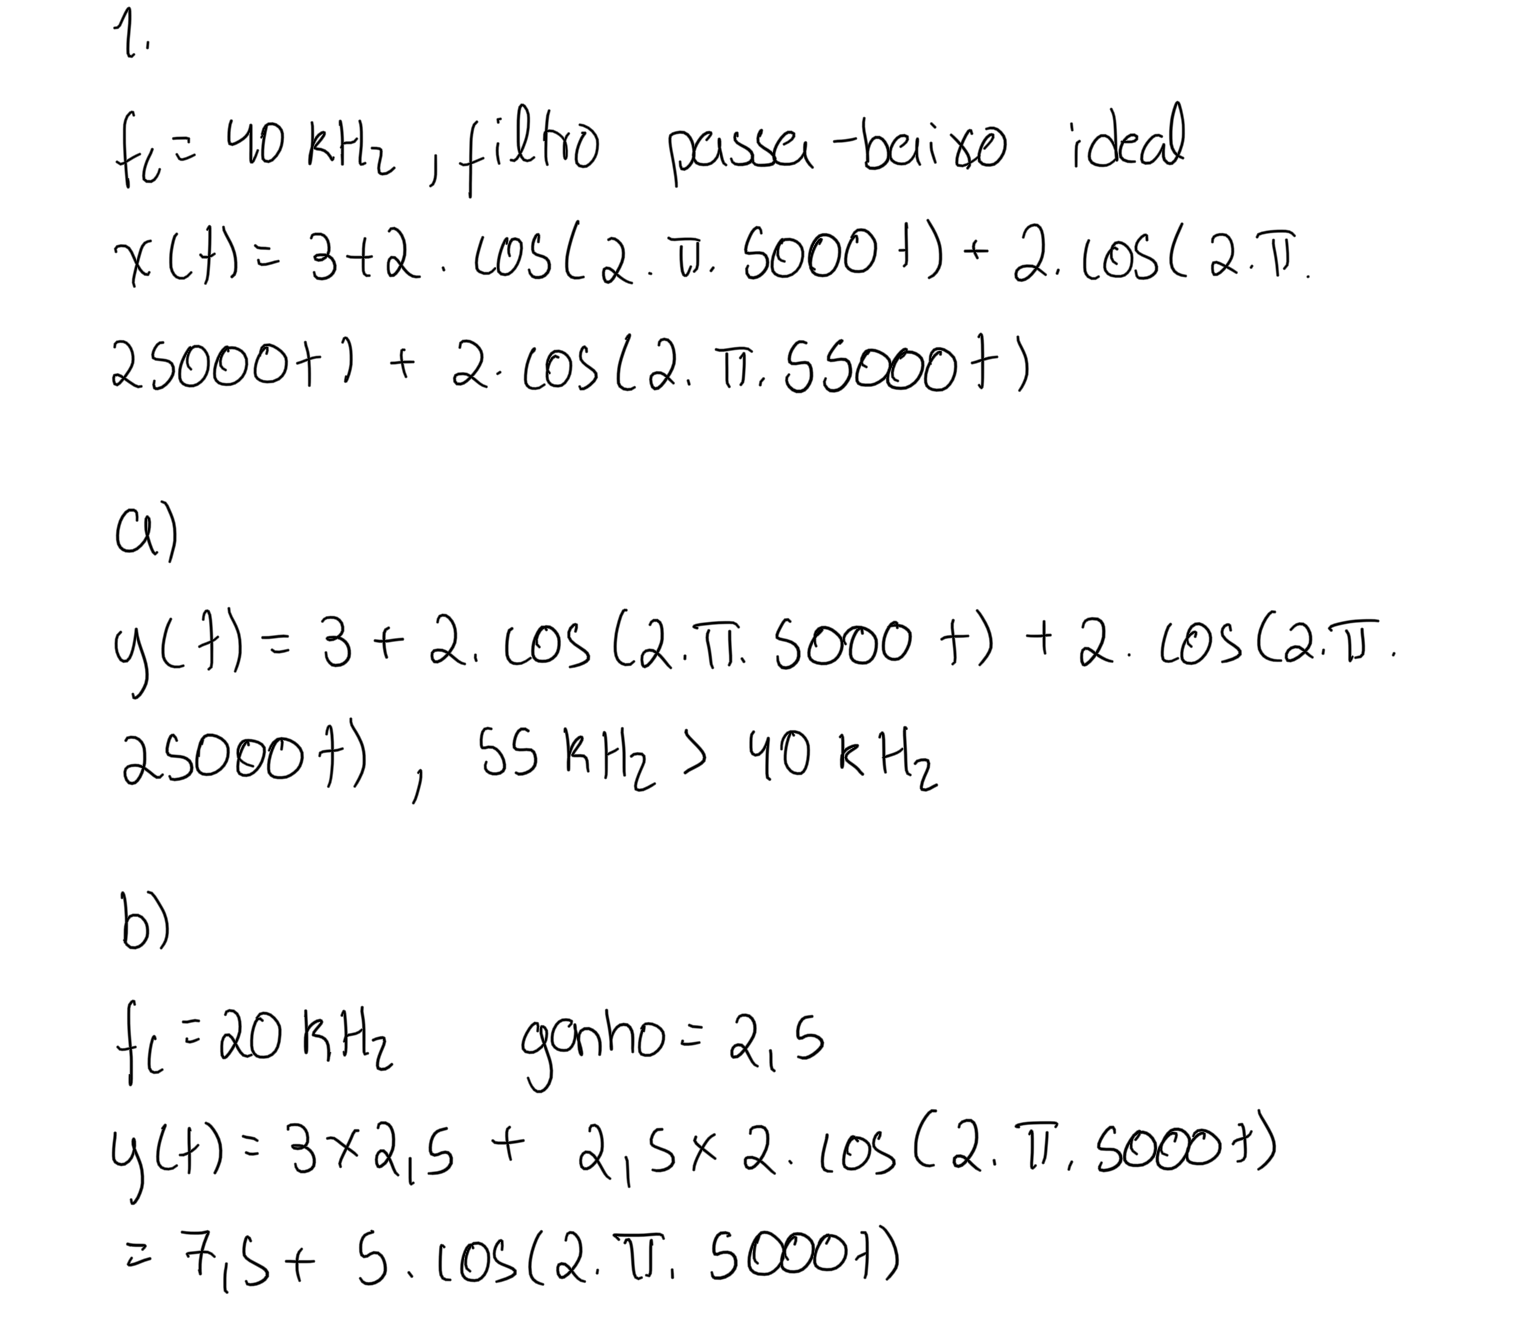 1.
fc = 40 kHz, filtro passa-baixo ideal
x(t) = 3+2 . cos(2. π. 5000 t) + 2. cos( 2.π.
25000t) + 2. cos(2. π. 55000t)
a)
y(t) = 3 + 2. cos (2.π. 5000 t) + 2. cos(2.π.
25000t) , 55 kHz > 40 kHz
b)
fc = 20 kHz ganho = 2,5
y(t) = 3×2,5 + 2,5× 2. cos (2. π. 5000t)
= 7,5+ 5. cos(2. π. 5000t)